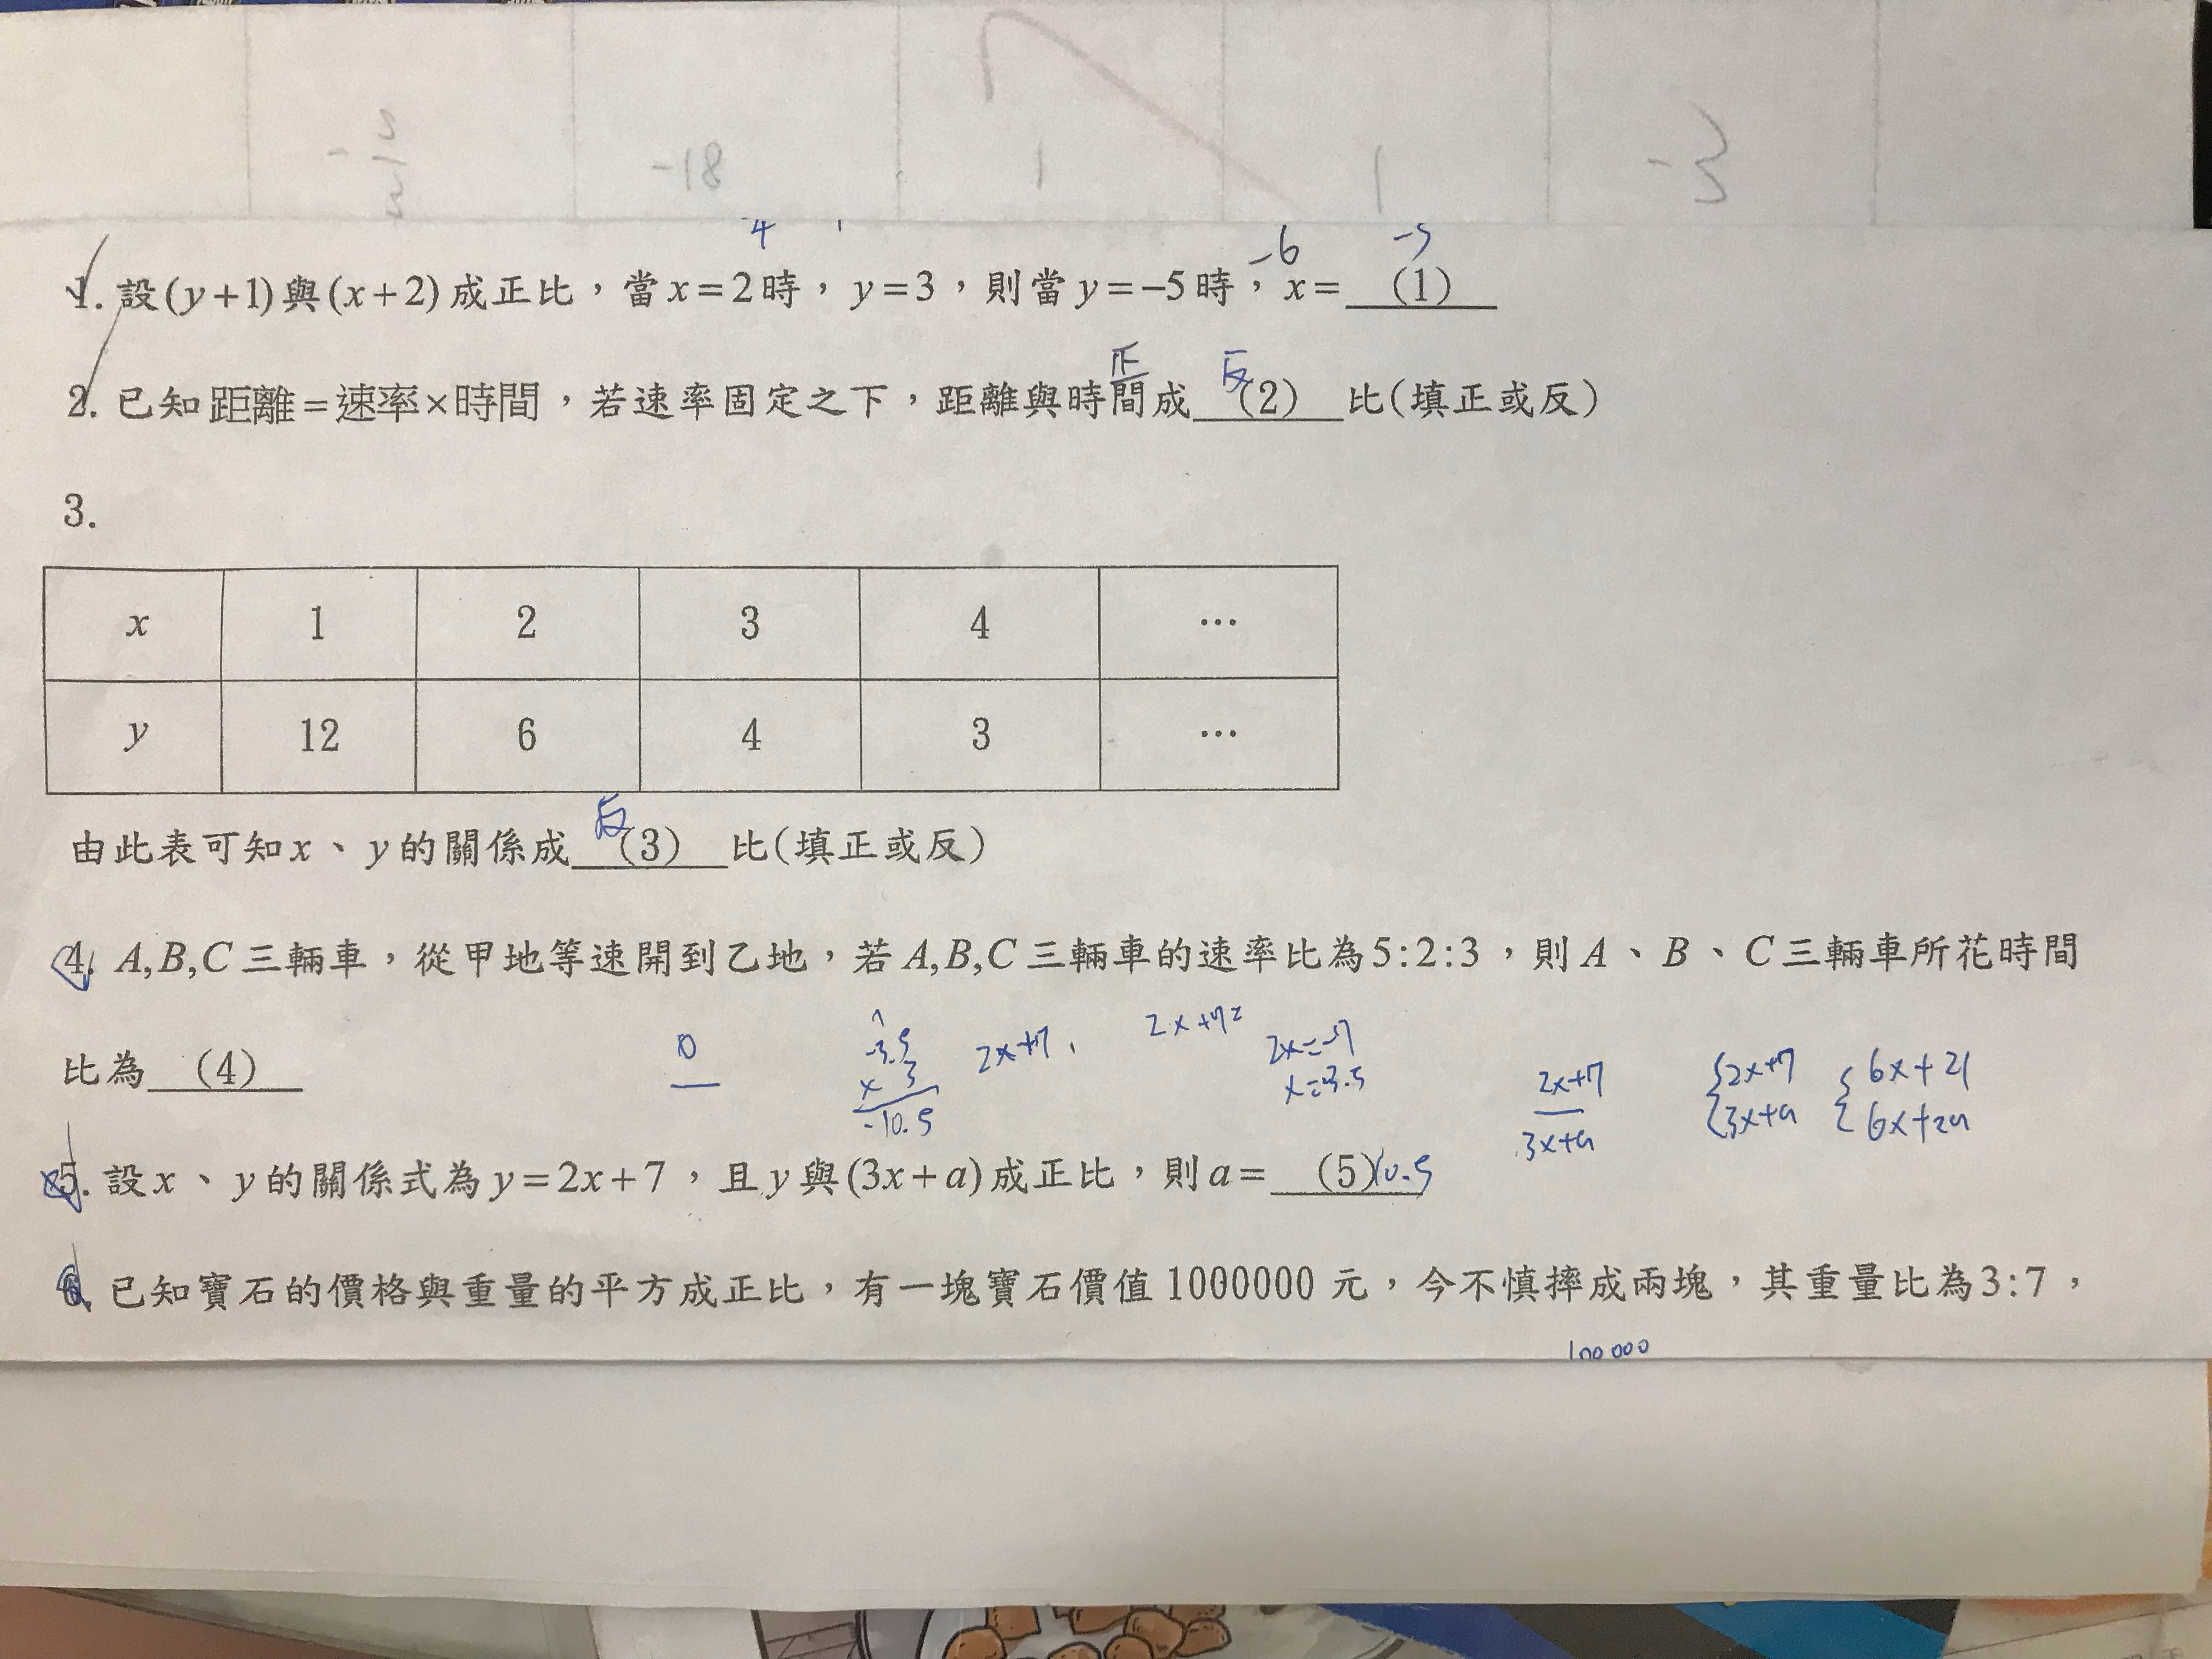 -18
1
1
-3
4
-6
-5
1. 設(y+1)與(x+2)成正比，當x=2時，y=3，則當y=-5時，x= (1)
正
反
2. 已知距離=速率×時間，若速率固定之下，距離與時間成 (2) 比(填正或反)
3.
x 1 2 3 4 …
y 12 6 4 3 …
反
由此表可知x、y的關係成 (3) 比(填正或反)
4. A,B,C三輛車，從甲地等速開到乙地，若A,B,C三輛車的速率比為5:2:3，則A、B、C三輛車所花時間
比為 (4)
0
-3.5
× 3
-10.5
2x+7
2x+7=
2x=-7
x=-3.5
2x+7
3x+a
{2x+7
3x+a
{6x+21
6x+2a
5. 設x、y的關係式為y=2x+7，且y與(3x+a)成正比，則a= (5) 10.5
6. 已知寶石的價格與重量的平方成正比，有一塊寶石價值1000000元，今不慎摔成兩塊，其重量比為3:7，
100000